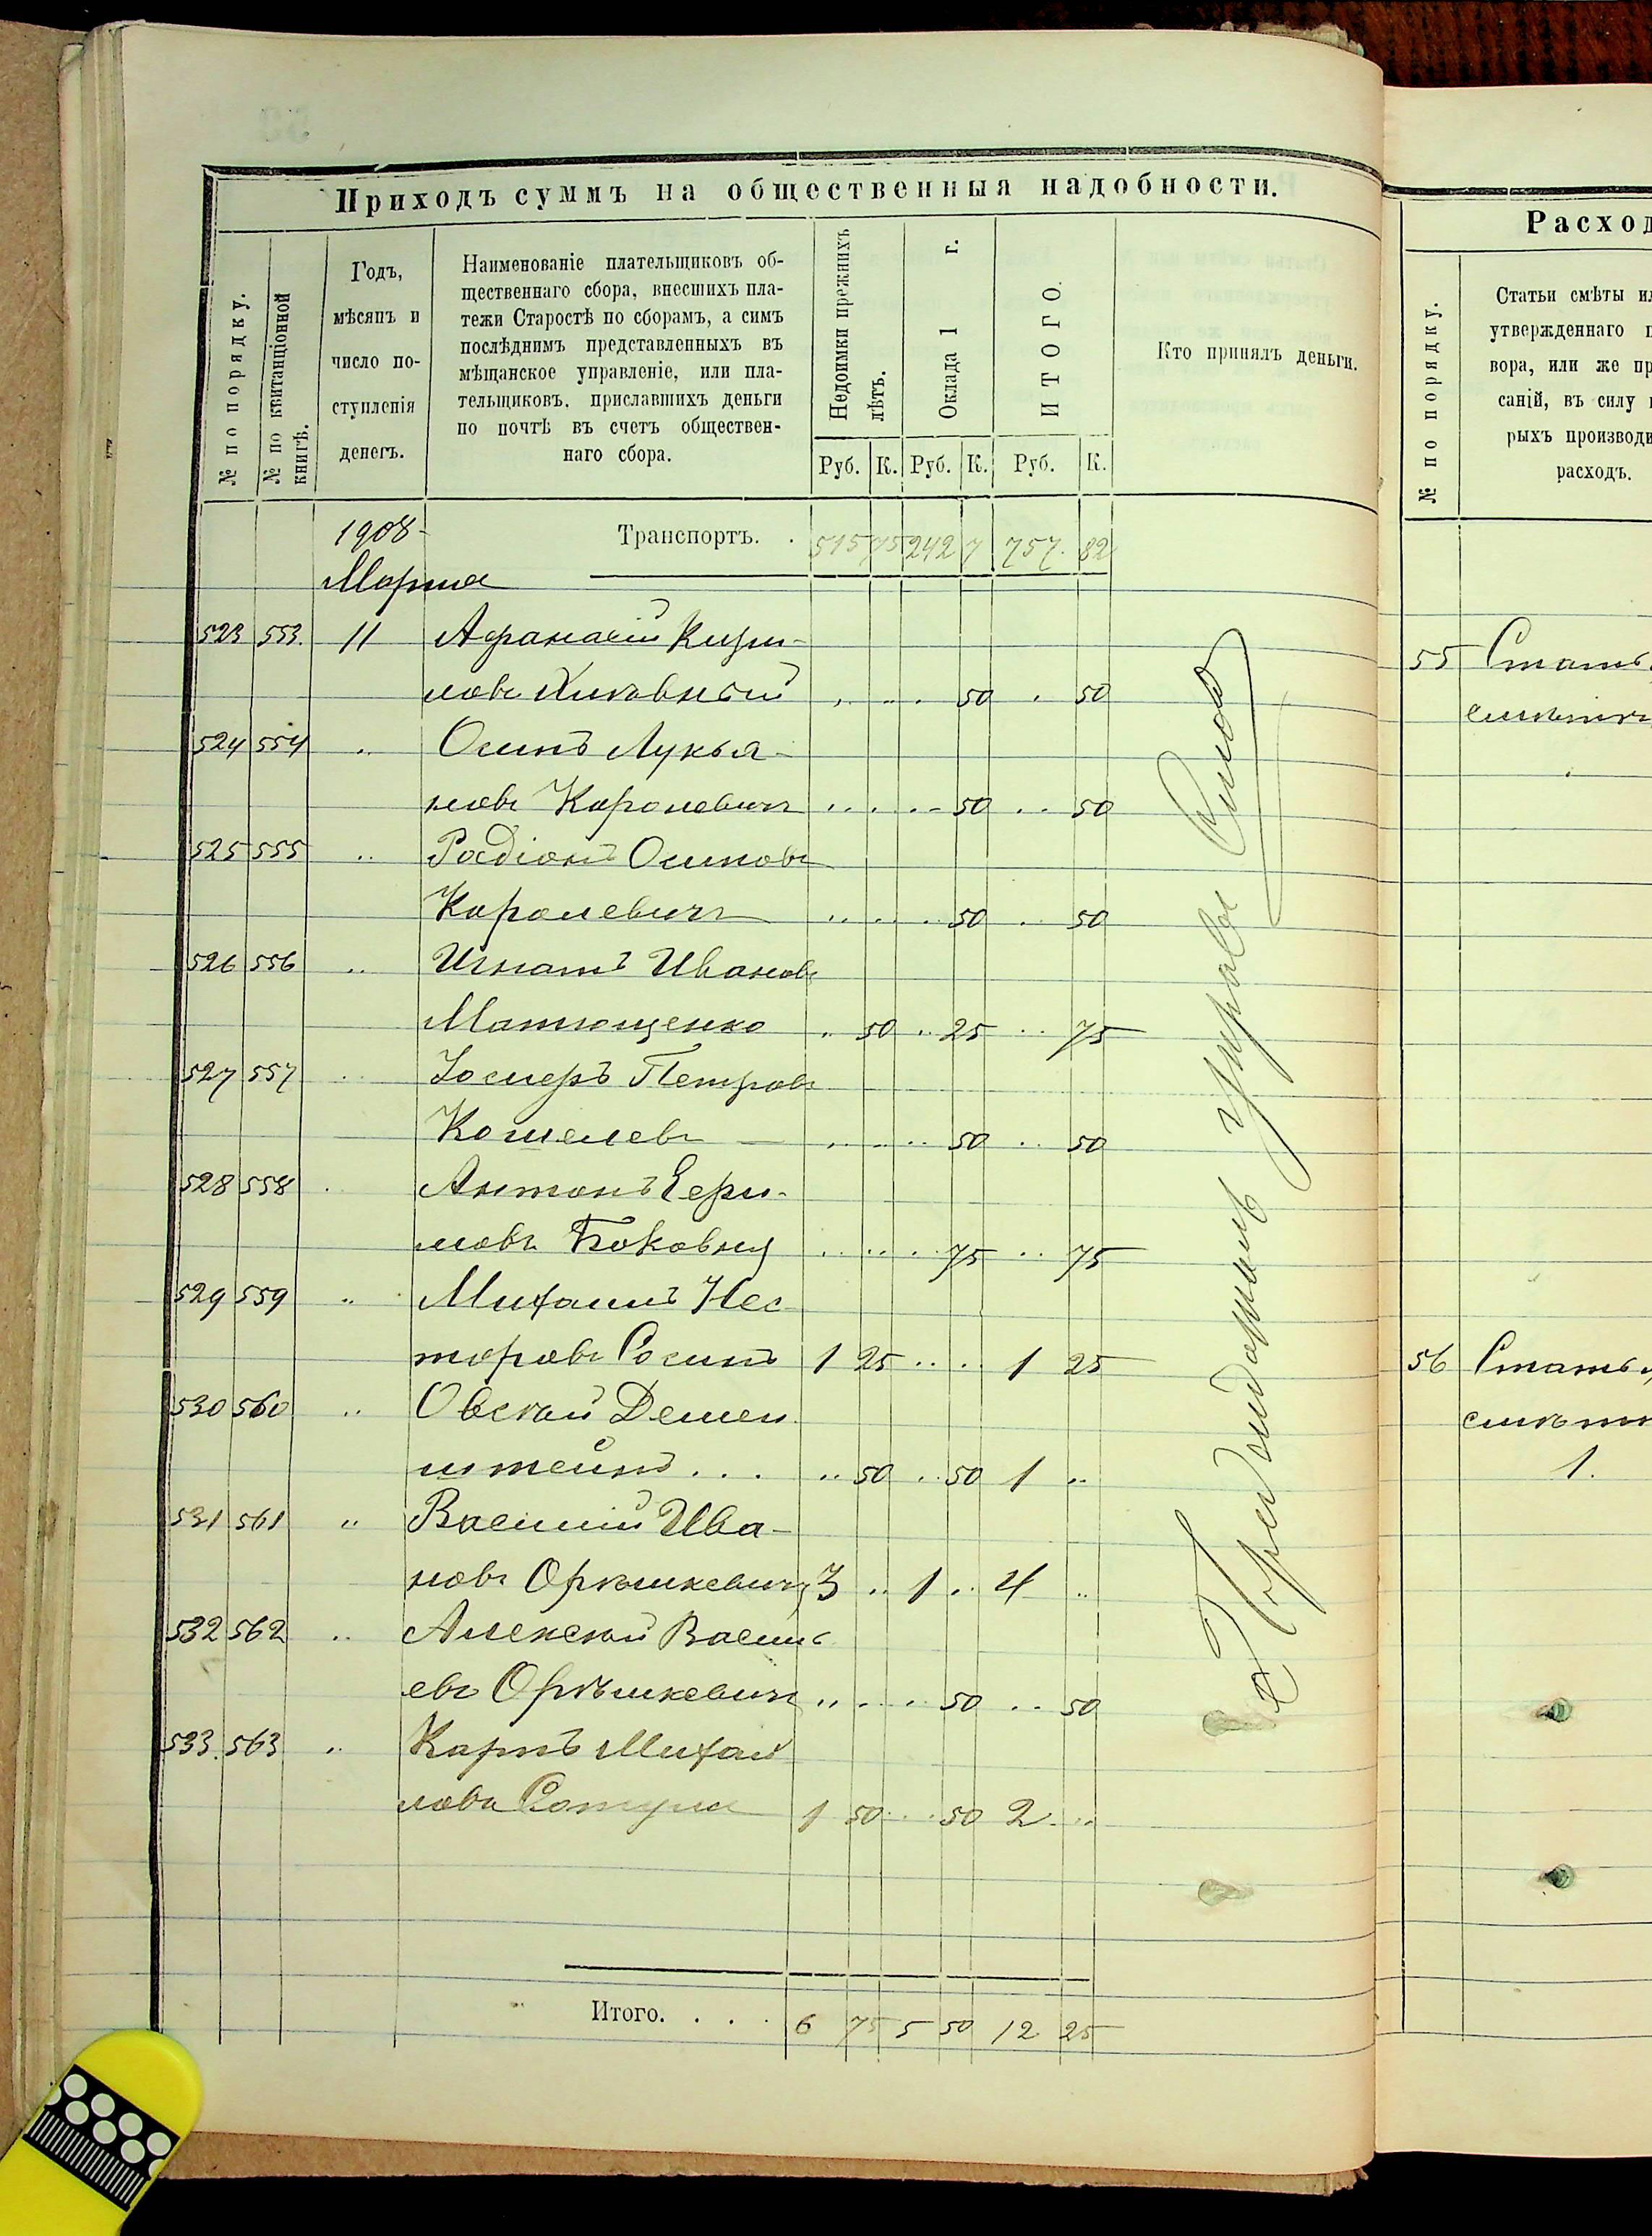 Приходъ суммъ на общественныя надобности.
№ по порядку.
№ по квитанціонной книгѣ.
Годъ,
мѣсяцъ и
число по-
ступленія
денегъ.
Наименованіе плательщиковъ об-
щественнаго сбора, внесшихъ пла-
тежи Старостѣ по сборамъ, а симъ
послѣднимъ представленныхъ въ
мѣщанское управленіе, или пла-
тельщиковъ, приславшихъ деньги
по почтѣ въ счетъ обществен-
наго сбора.
Недоимки прежнихъ лѣтъ.
Оклада 1 г.
ИТОГО.
Кто принялъ деньги.
Руб. К. Руб. К. Руб. К.
1908 Транспортъ. . 515 75 242 7 757 82
Марта
523 553 11 Афанасій Кири-
ловъ .. .. 50 . 50
524 554 .. Осипъ Лукья-
новъ Королевичъ .. .. 50 .. 50
525 555 .. Радіонъ Осиповъ
Королевичъ .. .. 50 .. 50
526 556 .. Игнатъ Ивановъ
Матющенко .. 50 .. 25 .. 75
527 557 .. Іосифъ Петровъ
Кошелевъ .. .. 50 .. 50
528 558 . Антонъ
Боковня .. .. 75 .. 75
529 559 .. Михаилъ Нес
торовъ Росинъ 1 25 .. .. 1 25
530 560 .. Овсѣй Демен
штейнъ . . . .. 50 .. 50 1 ..
531 561 .. Василій Ива-
новъ Орѣшкевичъ 3 .. 1 .. 4 ..
532 562 .. Алексѣй Василь
евъ Орѣшкевичъ .. .. 50 .. 50
533 563 .. Карпъ Михай
ловъ 1 50 .. 50 2 ..
Итого. . . . 6 75 5 50 12 25
Расход
№ по порядку.
Статьи смѣты ил
утвержденнаго п
вора, или же пр
саній, въ силу
рыхъ производи
расходъ.
55 Стать
56 Статья
смѣты
1.